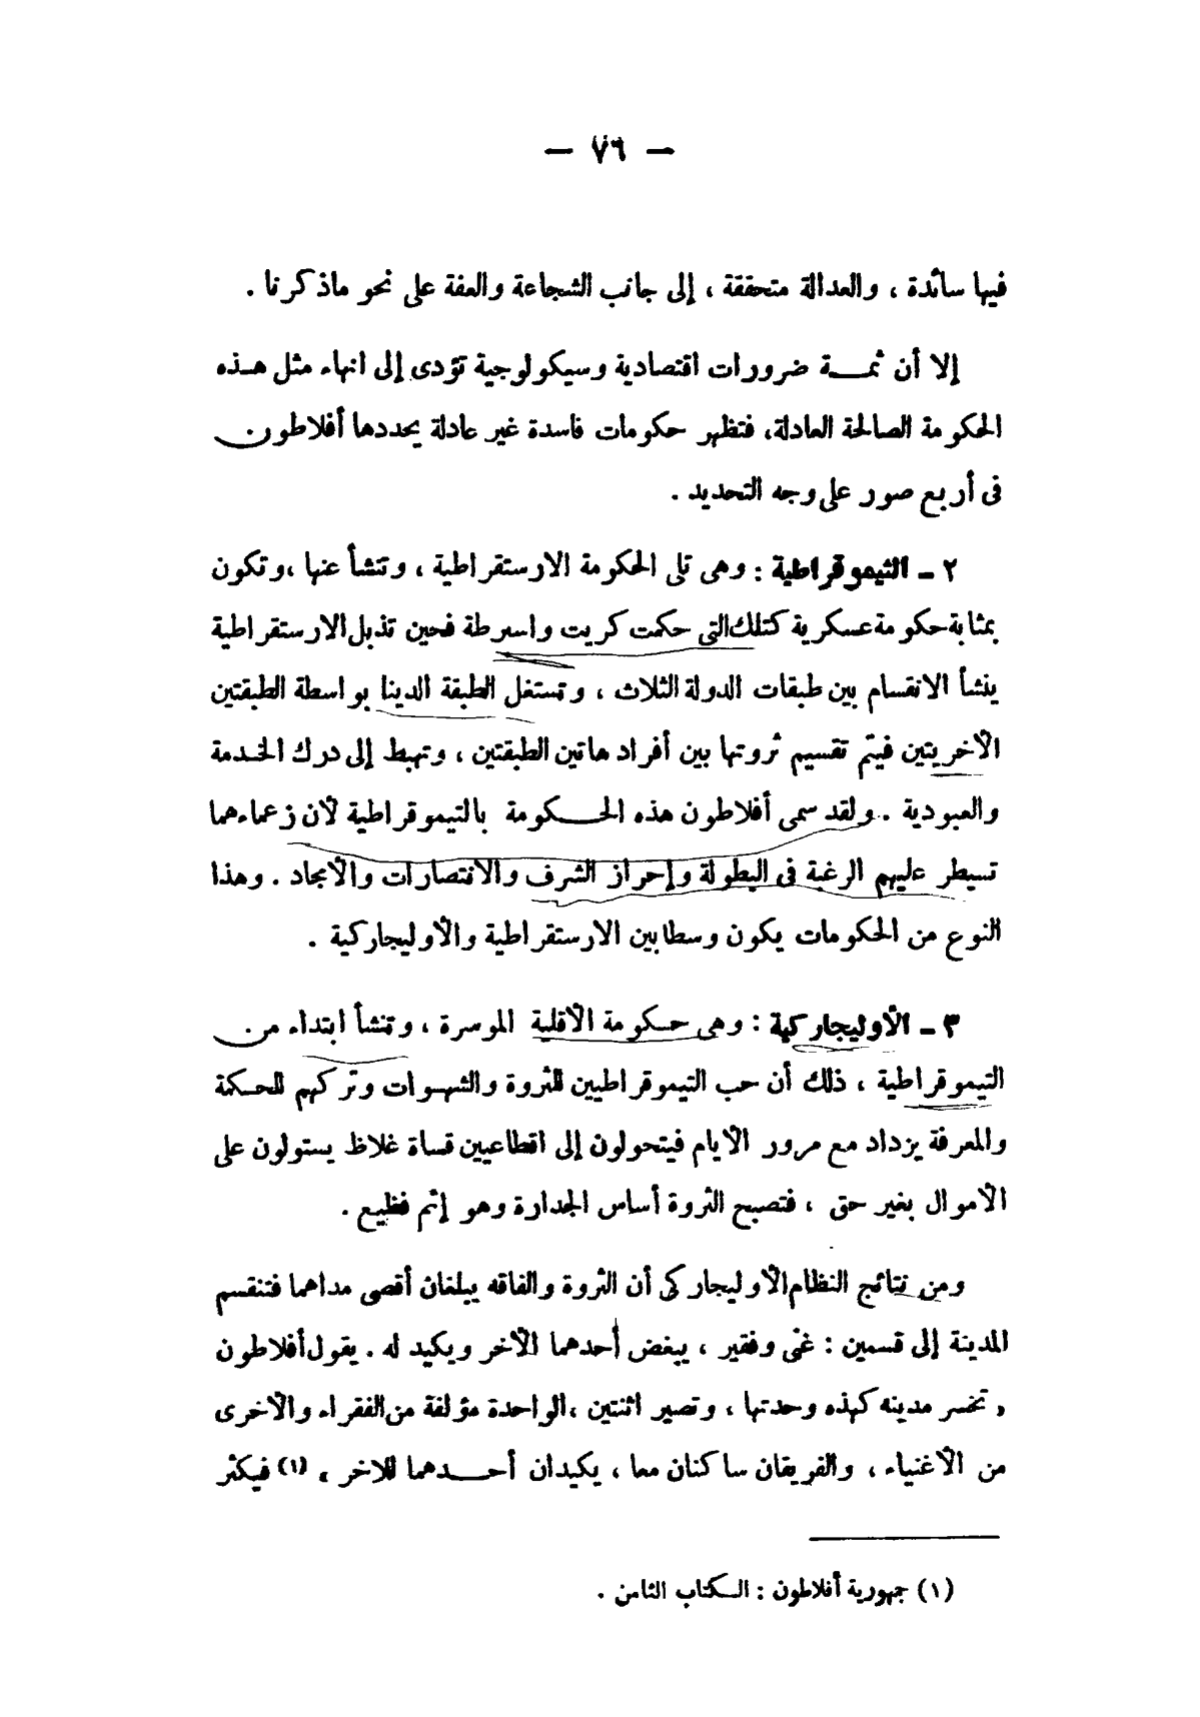 — ٧٦ —
فيها سائدة ، والعدالة متحققة ، إلى جانب الشجاعة والعفة على نحو ماذكرنا .
إلا أن ثمـــة ضرورات اقتصادية وسيكولوجية تؤدى إلى انهاء مثل هـذه
الحكومة الصالحة العادلة، فتظهر حكومات فاسدة غير عادلة يحددها أفلاطون
فى أربع صور على وجه التحديد .
٢ ــ التيموقراطية : وهى تلى الحكومة الارستقراطية ، وتنشأ عنها ،وتكون
بمثابة حكومة عسكرية كتلك التى حكمت كريت واسرطة فحين تذبل الارستقراطية
ينشأ الانقسام بين طبقات الدولة الثلاث ، وتستغل الطبقة الدينا بواسطة الطبقتين
الآخريتين فيتم تقسيم ثروتها بين أفراد هاتين الطبقتين ، وتهبط إلى درك الخدمة
والعبودية . ولقد سمى أفلاطون هذه الحـــكومة بالتيموقراطية لأن زعماءهما
تسيطر عليهم الرغبة فى البطولة وإحراز الشرف والانتصارات والأمجاد . وهذا
النوع من الحكومات يكون وسطا بين الارستقراطية والأوليجاركية .
٣ ــ الأوليجاركية : وهى حـكومة الأقلية الموسرة ، وتنشأ ابتداء من
التيموقراطية ، ذلك أن حب التيموقراطيين للثروة والشهـوات وتركهم للحكمة
والمعرفة يزداد مع مرور الأيام فيتحولون إلى اقطاعيين قساة غلاظ يستولون على
الأموال بغير حق ، فتصبح الثروة أساس الجدارة وهو إثم فظيع .
ومن نتائج النظام الأوليجاركى أن الثروة والفاقه يبلغان أقصى مداهما فتنقسم
المدينة إلى قسمين : غنى وفقير ، يبغض أحدهما الآخر ويكيد له . يقول أفلاطون
, تخسر مدينه كهذه وحدتها ، وتصير اثنتين ،الواحدة مؤلفة من الفقراء والأخرى
من الأغنياء ، والفريقان ساكنان معا ، يكيدان أحـــدهما للاخر ، (١) فيكثر
(١) جمهورية أفلاطون : الـكتاب الثامن .